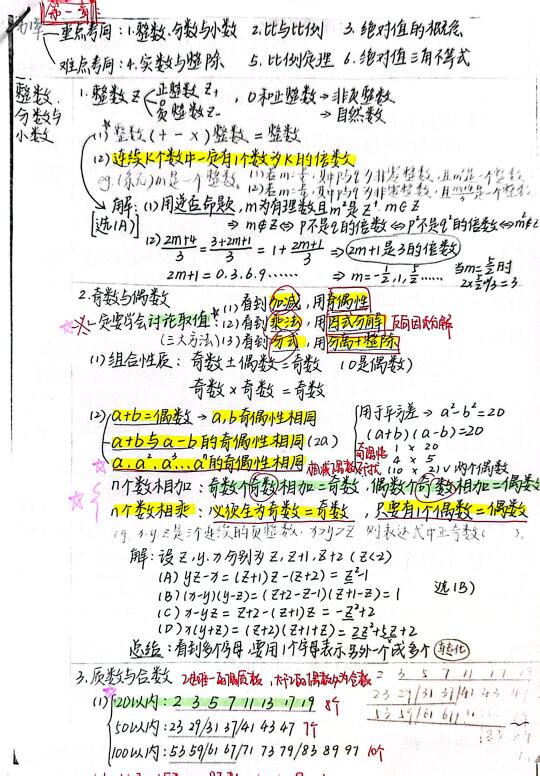 第一章
重点考周：1.整数.分数与小数 2.比与比例 3.绝对值的概念
难点考周：4.实数与整除 5.比例定理 6.绝对值三角不等式
整数、分数与小数
1.整数Z 正整数Z+ 负整数Z- ，0和正整数→非负整数 →自然数
(1)整数(+-×)整数=整数
(2)连续K个数中一定有1个数为K的倍数
m是一个整数，(1)若m=，其中p与q为非零整数，且m²是一个整数
(2)若m=，其中p与q为非零整数，且是一个整数
解：(1)用逆否命题，m为有理数且m²是Z m∈Z
[选(A)] ⇒m∉Z⇔p不是q的倍数⇔p²不是q²的倍数⇔m²∉Z
(2) 2m+4/3=3+2m+1/3=1+2m+1/3⇒2m+1是3的倍数
2m+1=0.3.6.9…… ⇒m=-1/2,1,5/2…… 当m=5/2时
2.奇数与偶数 (1)看到加减，用奇偶性
一定要学会讨论取值：(2)看到乘法，用因式分解
(三大方法)(3)看到分式，用分离+整除
(1)组合性质：奇数±偶数=奇数 (0是偶数)
奇数×奇数=奇数
(2)a+b=偶数→a,b奇偶性相同 用于平方差→a²-b²=20
a+b与a-b的奇偶性相同(2a) (a+b)(a-b)=20
奇偶性 1×20
4×5
a.a².a³…aⁿ的奇偶性相同 (10×2)√两个偶数
n个数相加：奇数个奇数相加=奇数，偶数个奇数相加=偶数
n个数相乘：必须全为奇数=奇数，只要有1个偶数=偶数
eg.x.y.z是三个连续的负整数，x>y>z，则表达式中正奇数( )
解：设z,y,x分别为z,z+1,z+2(z<-2)
(A)yz-x=(z+1)z-(z+2)=z²-2
(B)(x-y)(y-z)=(z+2-z-1)(z+1-z)=1 选(B)
(C)x-yz=z+2-(z+1)z=-z²+2
(D)x(y+z)=(z+2)(z+1+z)=2z²+5z+2
总结：看到多个字母，要用1个字母表示另外一个或多个 转化
3.质数与合数 2是唯一的偶质数，大于2的偶数必为合数
(1)20以内：2 3 5 7 11 13 17 19 8个
50以内：23 29/31 37/41 43 47 7个
100以内：53 59/61 67/71 73 79/83 89 97 10个